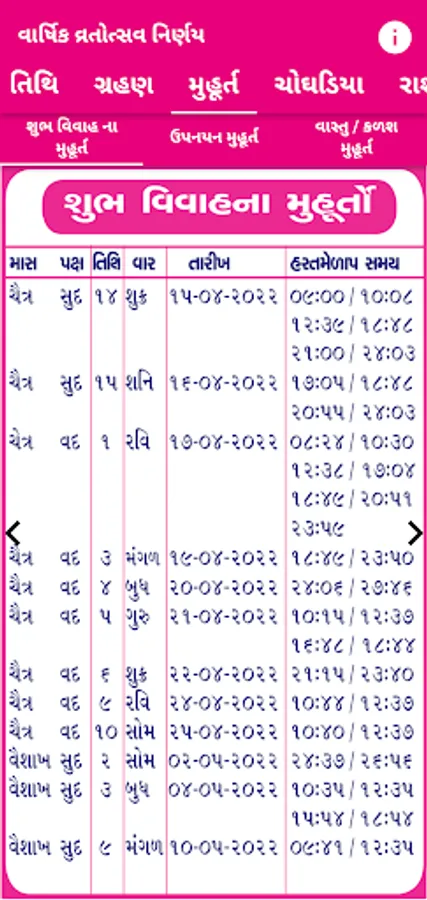 વાર્ષિક વ્રતોત્સવ નિર્ણય
તિથિ ગ્રહણ મુહૂર્ત ચોઘડિયા રાશ
શુભ વિવાહ ના
મુહૂર્ત
ઉપનયન મુહૂર્ત
વાસ્તુ / કળશ
મુહૂર્ત
શુભ વિવાહના મુહૂર્તો
માસ પક્ષ તિથિ વાર તારીખ હસ્તમેળાપ સમય
ચૈત્ર સુદ ૧૪ શુક્ર ૧૫-૦૪-૨૦૨૨ ૦૯:૦૦ / ૧૦:૦૮
૧૨:૩૯ / ૧૮:૪૮
૨૧:૦૦ / ૨૪:૦૩
ચૈત્ર સુદ ૧૫ શનિ ૧૬-૦૪-૨૦૨૨ ૧૭:૦૫ / ૧૮:૪૮
૨૦:૫૫ / ૨૪:૦૩
ચેત્ર વદ ૧ રવિ ૧૭-૦૪-૨૦૨૨ ૦૮:૨૪ / ૧૦:૩૦
૧૨:૩૮ / ૧૭:૦૪
૧૮:૪૯ / ૨૦:૫૧
૨૩:૫૯
ચૈત્ર વદ ૩ મંગળ ૧૯-૦૪-૨૦૨૨ ૧૮:૪૯ / ૨૩:૫૦
ચૈત્ર વદ ૪ બુધ ૨૦-૦૪-૨૦૨૨ ૨૪:૦૬ / ૨૭:૪૬
ચૈત્ર વદ ૫ ગુરુ ૨૧-૦૪-૨૦૨૨ ૧૦:૧૫ / ૧૨:૩૭
૧૬:૪૮ / ૧૮:૪૪
ચૈત્ર વદ ૬ શુક્ર ૨૨-૦૪-૨૦૨૨ ૨૧:૧૫ / ૨૩:૪૦
ચૈત્ર વદ ૯ રવિ ૨૪-૦૪-૨૦૨૨ ૧૦:૪૪ / ૧૨:૩૭
ચૈત્ર વદ ૧૦ સોમ ૨૫-૦૪-૨૦૨૨ ૧૦:૪૦ / ૧૨:૩૭
વૈશાખ સુદ ૨ સોમ ૦૨-૦૫-૨૦૨૨ ૨૪:૩૭ / ૨૬:૫૬
વૈશાખ સુદ ૩ બુધ ૦૪-૦૫-૨૦૨૨ ૧૦:૩૫ / ૧૨:૩૫
૧૫:૫૪ / ૧૮:૫૪
વૈશાખ સુદ ૯ મંગળ ૧૦-૦૫-૨૦૨૨ ૦૯:૪૧ / ૧૨:૩૫